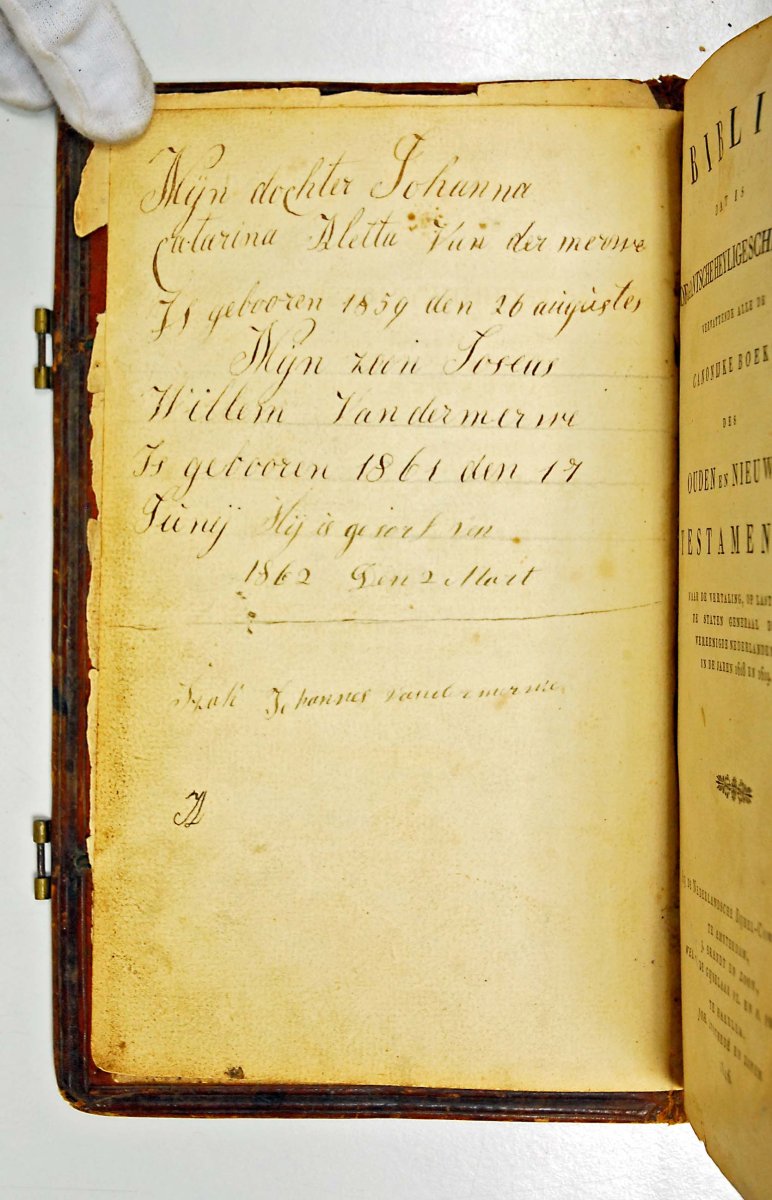 Mijn dochter Johanna
Catarina Aletta Van der merwe
Is gebooren 1859 den 26 augustes
Mijn zoon Joseus
Willem Van der merwe
Is gebooren 1861 den 17
Junij Hij is gesorven
1862 Den 2 Mart
Izak Johannes vander merwe
A
BIBLI
DAT IS
HEYLIGE SCH
VERVATTENDE ALLE DE
CANONIJKE BOEK
DES
OUDEN EN NIEUW
TESTAMEN
NAAR DE VERTALING, OP LAST
DE STATEN GENERAAL D
VEREENIGDE NEDERLANDEN
IN DE JAREN 1618 EN 1619
DE NEDERLANDSCHE BIJBEL-COM
TE AMSTERDAM,
J. BRANDT EN ZOON,
TE HAARLEM,
JOH. ENSCHEDÉ EN ZONEN